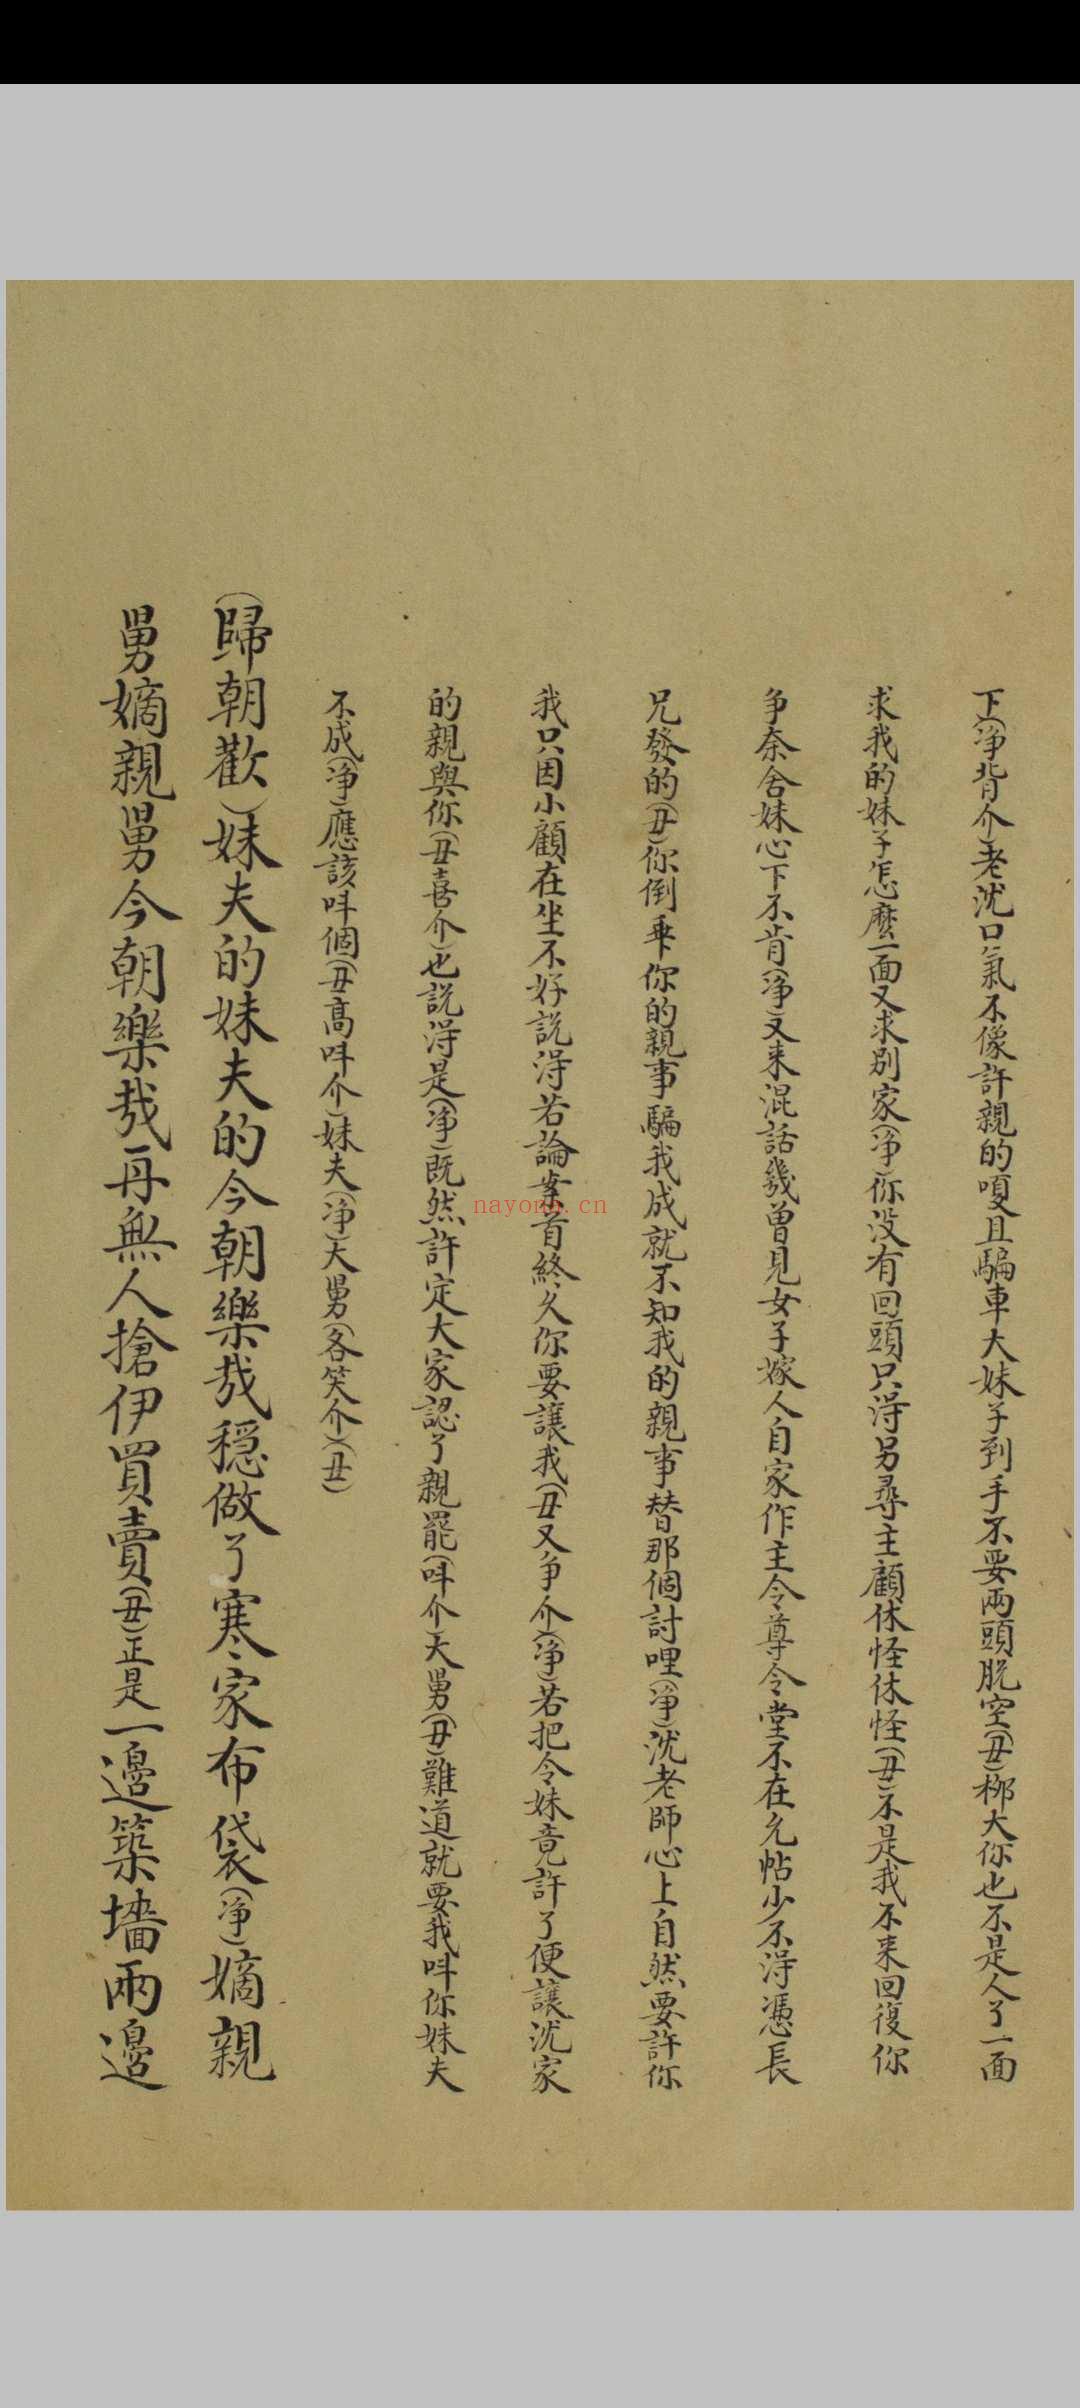 下(净背介)老沈口氣不像許親的嗄且騙車大妹子到手不要兩頭脫空(丑)柳大你也不是人了一面
求我的妹子怎麼一面又求别家(净)你没有回頭只淂另尋主顧休怪休怪(丑)不是我不来回復你
争奈舍妹心下不肯(净)又来混話幾曽見女子嫁人自家作主令尊令堂不在允帖少不淂憑長
兄發的(丑)你倒乖你的親事騙我成就不知我的親事替那個討哩(净)沈老師心上自然要許你
我只因小顧在坐不好説淂若論案首終久你要讓我(丑又争介)(净)若把令妹竟許了便讓沈家
的親與你(丑喜介)也説淂是(净)既然許定大家認了親罷(呌介)大舅(丑)難道就要我呌你妹夫
不成(净)應該呌個(丑髙呌介)妹夫(净)大舅(各笑介)(丑)
(歸朝歡)妹夫的妹夫的今朝樂哉穏做了寒家布袋(净)嫡親
舅嫡親舅今朝樂哉再無人搶伊買賣(丑)正是一邊築墻兩邊
nayona.cn